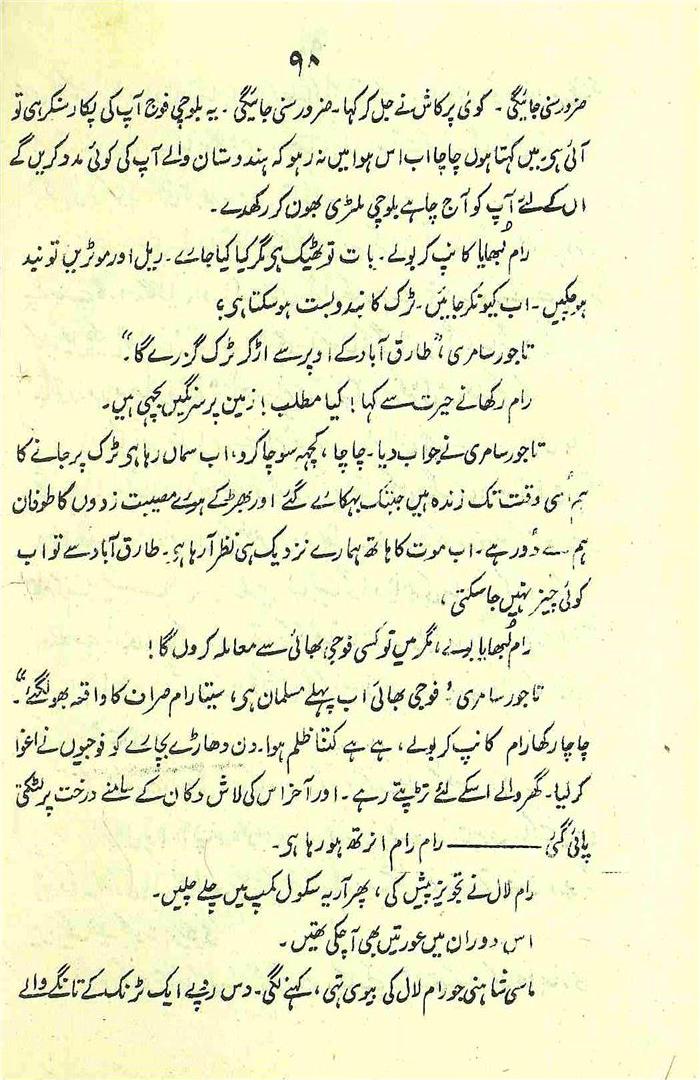 ۹۸
ضرور سنی جائیگی ۔ کوی پرکاش نے جل کر کہا ۔ ضرور سنی جائیگی ۔ یہ بلوچی فوج آپ کی پکار سنکر ہی تو
آئی ہی ۔ میں کہتا ہوں چاچا اب اس ہوا میں نہ رہو کہ ہندوستان والے آپ کی کوئی مدد کریں گے
ان کےلئے آپ کو آج چاہے بلوچی ملٹری بھون کر رکھدے ۔
رام لُبھایا کانپ کر بولے ۔ بات تو ٹھیک ہی مگر کیا کیا جاے ۔ ریل اور موٹریں تو بند
ہو چکیں ۔ اب کیونکر جائیں ۔ ٹرک کا بندوبست ہو سکتا ہی؟
تاجور سامری ، " طارق آباد کے اوپر سے اڑ کر ٹرک گزرے گا ۔"
رام رکھا نے حیرت سے کہا ! کیا مطلب ! زمین پر سرنگیں بچھی ہیں ۔
تاجور سامری نے جواب دیا ۔ چاچا ، کچھ سوچا کرو ، اب سماں رہا ہی ٹرک پر جانے کا
ہم اُسی وقت تک زندہ ہیں جبتک بہکاے گئے اور بھڑکے ہوے مصیبت زدوں کا طوفان
ہم سے دُور ہے ۔ اب موت کا ہاتھ ہمارے نزدیک ہی نظر آ رہا ہی ۔ طارق آباد سے تو اب
کوئی چیز نہیں جا سکتی ،
رام لُبھایا بولے ، مگر میں تو کسی فوجی بھائی سے معاملہ کروں گا !
تاجور سامری " فوجی بھائی اب پہلے مسلمان ہی ، سیتا رام صراف کا واقعہ بھول گئے "۔
چاچا رکھا رام کانپ کر بولے ، ہے ہے کتنا ظلم ہوا ۔ دن دھاڑے بچارے کو فوجیوں نے اغوا
کر لیا ۔ گھر والے اسکے لئے تڑپتے رہے ۔ اور آخر اس کی لاش دکان کے سامنے درخت پر لٹکتی
پائی گئی ——— رام رام انرتھ ہو رہا ہی ۔
رام لال نے تجویز پیش کی ، پھر آریہ سکول کمپ میں چلے چلیں ۔
اس دوران میں عورتیں بھی آ چکی تھیں ۔
ماسی شاہنی جو رام لال کی بیوی تہی ، کہنے لگی ۔ دس روپے ایک ٹرنک کے تانگے والے